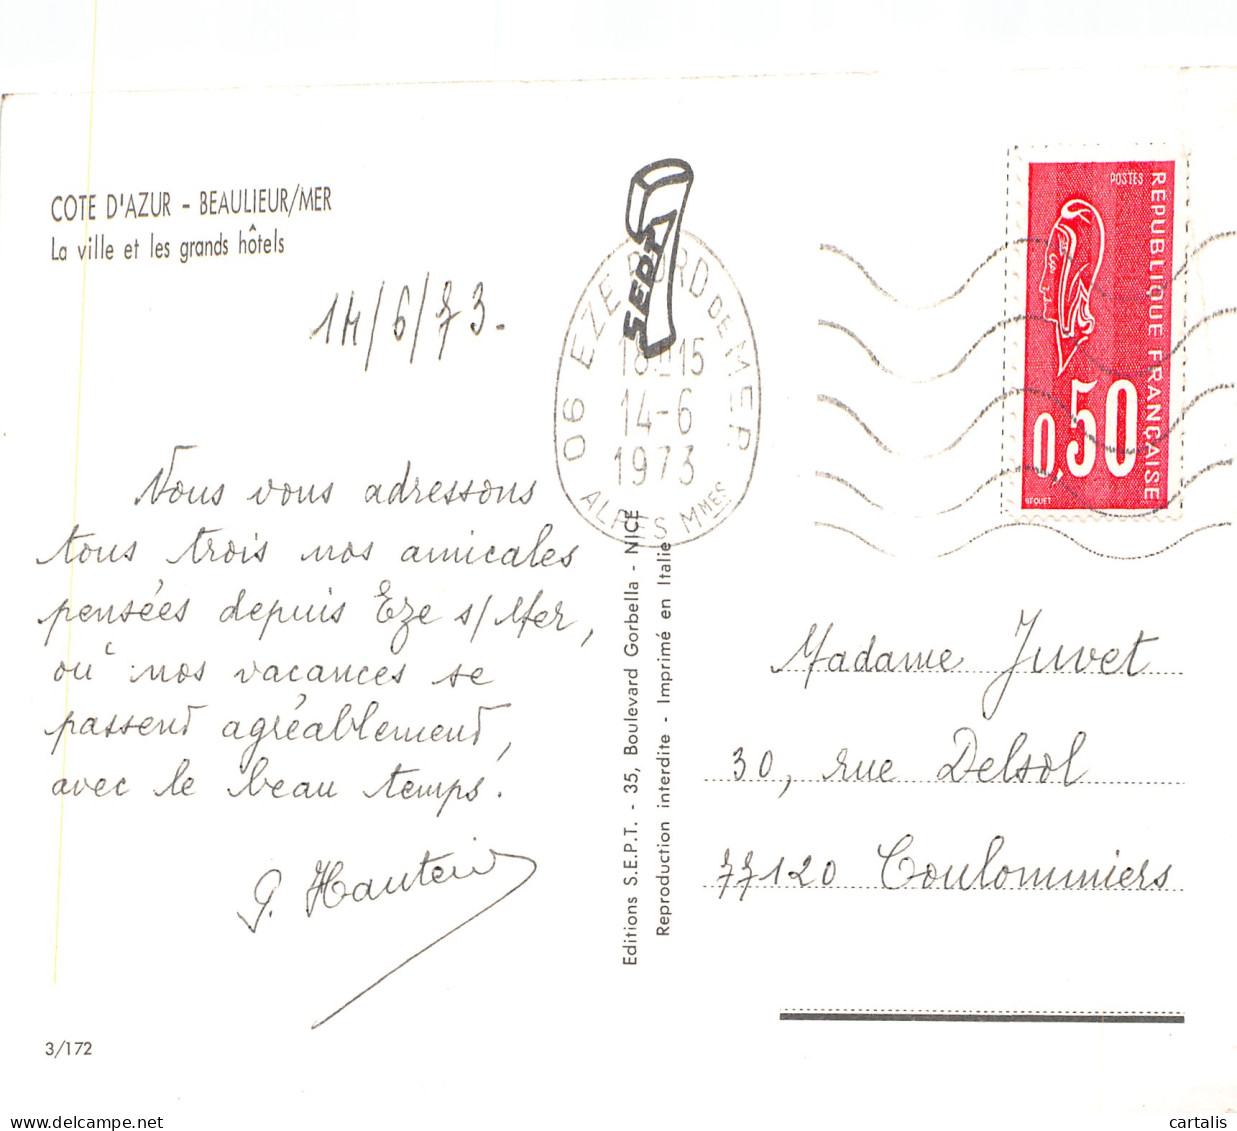 COTE D'AZUR - BEAULIEUR/MER
La ville et les grands hôtels
14/6/73-
Nous vous adressons
tous trois nos amicales
pensées depuis Eze s/Mer,
où nos vacances se
passent agréablement,
avec le beau temps.
3/172
SEPT
06 EZE BORD DE MER
18H15
14-6
1973
ALPES MMES
Editions S.E.P.T. - 35, Boulevard Gorbella - NICE
Reproduction interdite - Imprimé en Italie
POSTES
REPUBLIQUE FRANÇAISE
0,50
BEQUET
Madame Juvet
30, rue Delsol
77120 Coulommiers
cartalis